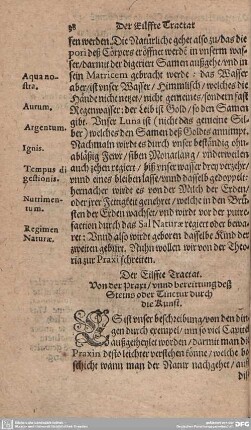 38 Der Eilffte Tractat
sen werden. Die Natürliche gehet also zu / das die
pori deß Cörpers eröffnet werdē in vnserm was-
ser / darmit der digeriert Samen außgehe / vnd in
Aqua no- sein Matricem gebracht werde : das Wasser
stra. aber / ist vnser Wasser / Himmlisch / welches die
Hände nicht netzet / nicht gemeines / sondern fast
Aurum. Regenwasser: der Leib ist Gold / so den Samen
gibt. Vnser Luna ist ( nicht das gemeine Sil-
Argentum. ber ) welches den Samen deß Goldes annimpt.
Nachmaln wirdt es durch vnser beständig ohn-
Ignis. abläßig Fewr / siben Monatlang / vnderweilen
Tempus di auch zehen regiert / biß vnser wasser drey verzehr /
gestionis. vnnd eines bleiben lasse / vnnd dasselb gedoppelt:
hernacher wirdt es von der Milch der Erden
Nutrimen- oder jrer Feißtigkeit genehret / welche in den Brü-
tum. sten der Erden wachset / vnd wirdt vor der putre-
Regimen faction durch das Sal Naturæ regiert oder bewa-
Naturæ. ret: Vnnd also wirdt geboren dasselbe Kind der
zweiten geburt. Nuhn wollen wir von der Theo-
ria zur Praxi schreiten.
Der Eilffte Tractat.
Von der Praxi / vnnd bereittung deß
Steins oder Tinctur durch
die Kunst.
ES ist vnser beschreibung / von den din-
gen durch exempel / inn so viel Capitel
außgetheylet worden / darmit man die
Praxin desto leichter verstehen könne / welche be-
schicht wann man der Natur nachgehet / auff
dise